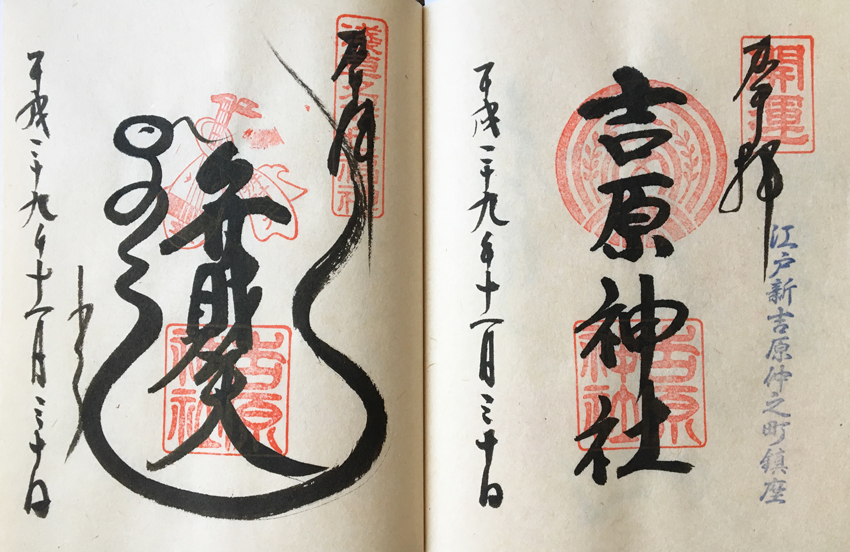 開運
奉拝
江戸新吉原仲之町鎮座
吉原神社
吉原神社
平成二十九年十一月三十日
浅草名所七福神
奉拝
弁財天
吉原神社
平成二十九年十一月三十日